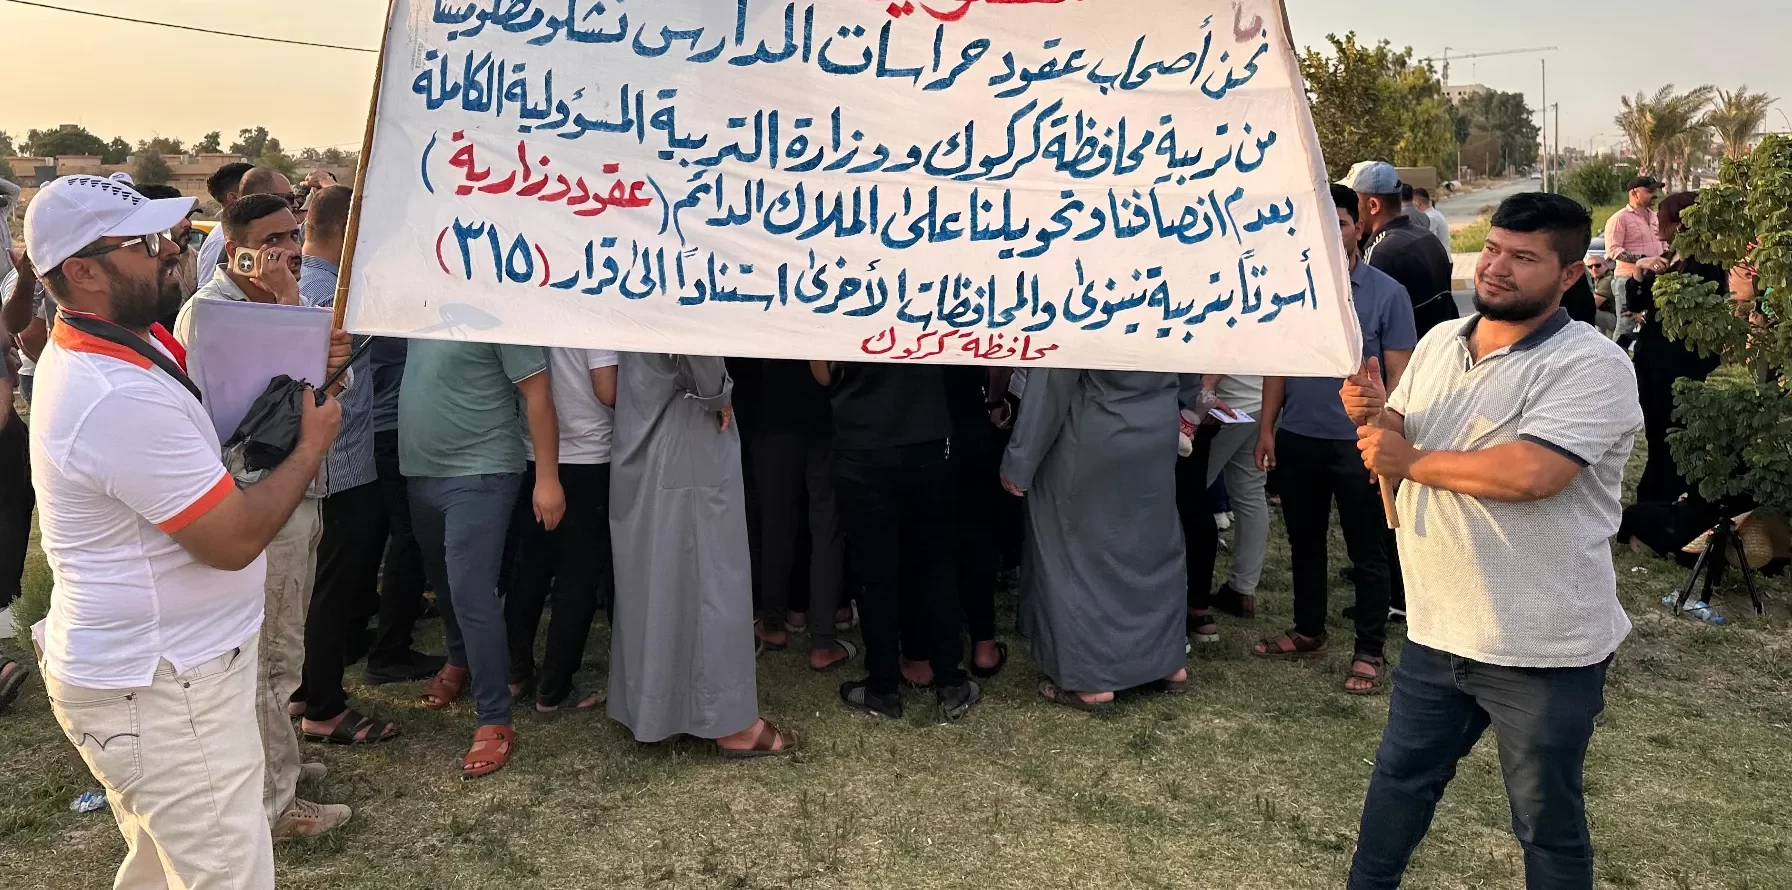 نحن أصحاب عقود حراسات المدارس نشكو مظلوميتنا
من تربية محافظة كركوك ووزارة التربية المسؤولية الكاملة
بعدم انصافنا وتحويلنا على الملاك الدائم (عقود وزارية)
أسوتاً بتربية نينوى والمحافظات الأخرى استناداً الى قرار (٣١٥)
محافظة كركوك